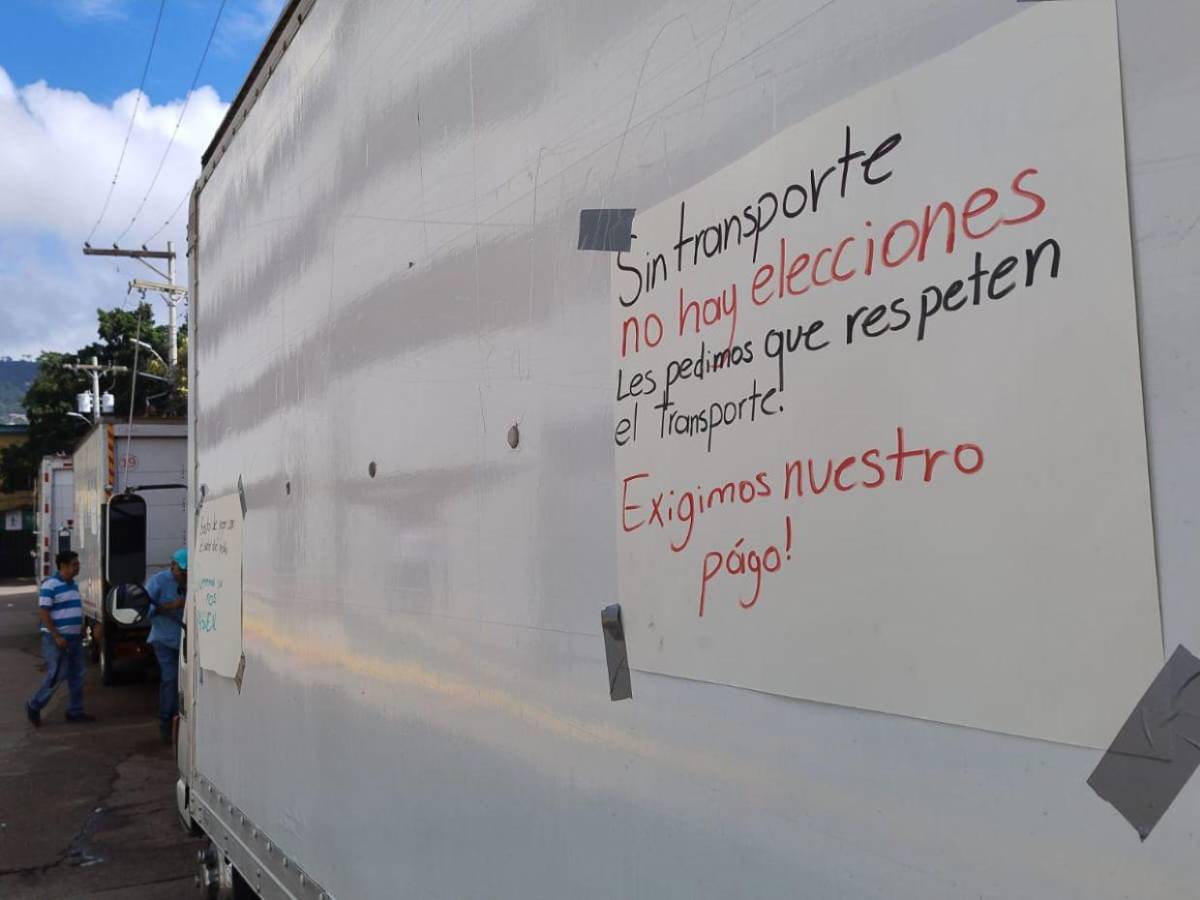 Sin transporte
no hay elecciones
Les pedimos que respeten
el transporte.
Exigimos nuestro
págo!
19
nos